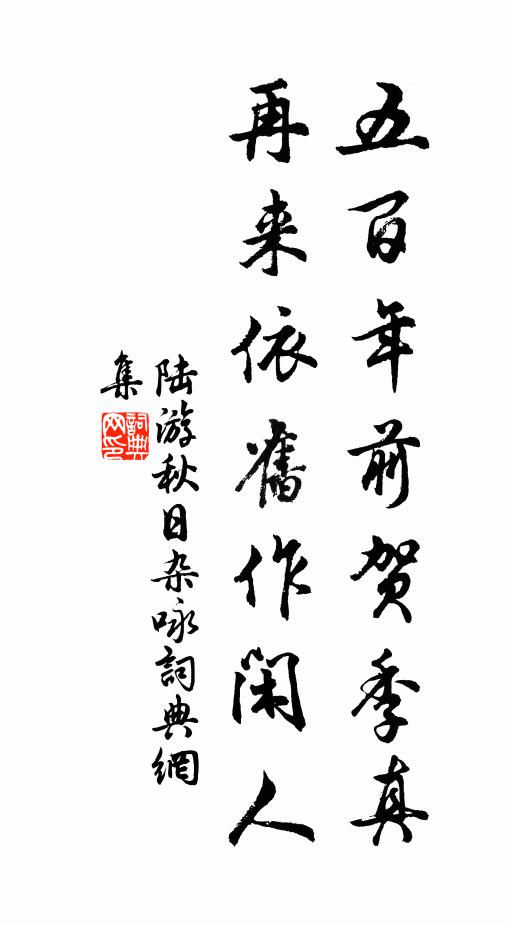 五百年前贺季真
再来依舊作閑人
陆游秋日杂咏詞典網
集
詞典网印